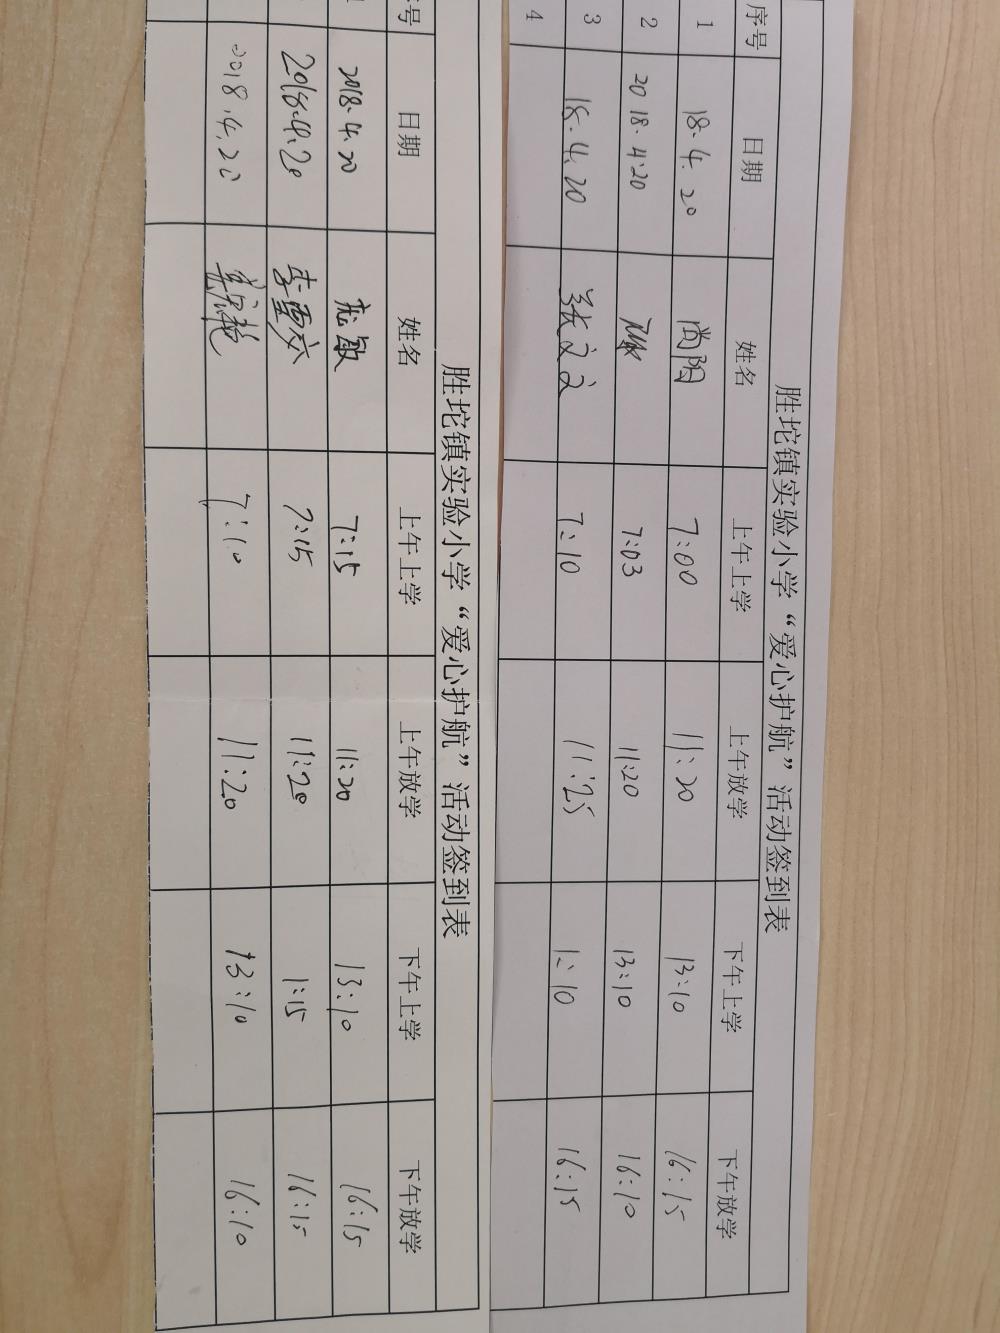 胜坨镇实验小学“爱心护航”活动签到表
序号 日期 姓名 上午上学 上午放学 下午上学 下午放学
1 18.4.20 尚阳 7:00 11:20 13:10 16:15
2 2018.4.20 7:03 11:20 13:10 16:10
3 18.4.20 张文文 7:10 11:25 1:10 16:15
4
胜坨镇实验小学“爱心护航”活动签到表
号 日期 姓名 上午上学 上午放学 下午上学 下午放学
2018.4.20 敏 7:15 11:20 13:10 16:15
2018.4.20 李雪芬 7:15 11:20 1:15 16:15
2018.4.20 7:10 11:20 13:10 16:10